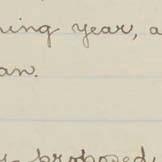 ning year, a
an.
proposed